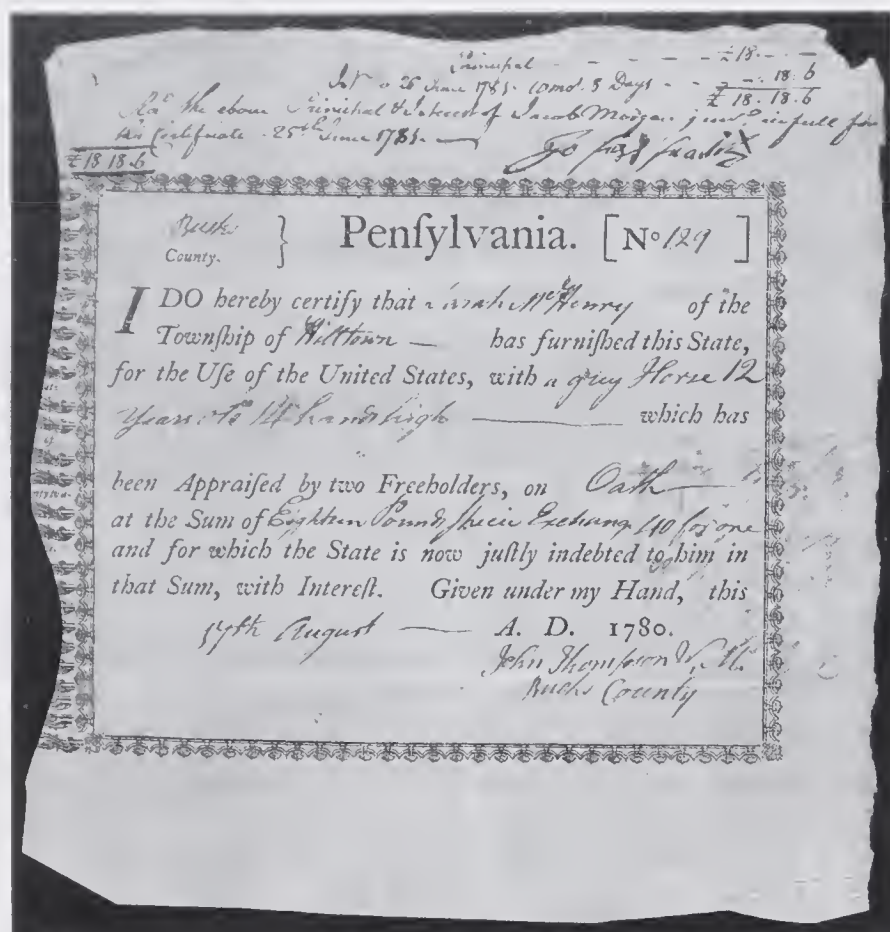 Principal - - - £ 18. - -
Int. o 26 June 1781. 10 mo. 8 Days - - -. 18. 6
£ 18. 18. 6
the above Principal & Interest of Jacob Morgan jun.r in full for
Certificate 25th June 1781.
£ 18 18. 6
Bucks
County.
} Penſylvania. [No 129 ]
I DO hereby certify that McHenry of the
Townſhip of Hilltown — has furniſhed this State,
for the Uſe of the United States, with a grey Horse 12
Years hands high ——— which has
been Appraiſed by two Freeholders, on Oath —
at the Sum of Eighteen Pounds specie Exchang 40 for one
and for which the State is now juſtly indebted to him in
that Sum, with Intereſt. Given under my Hand, this
17th August —— A. D. 1780.
John Thompson W. M.
Bucks County